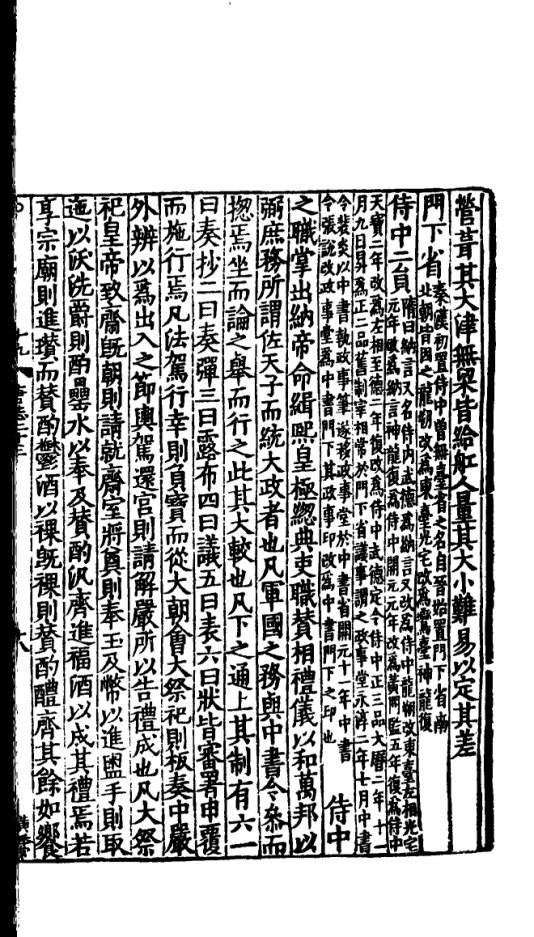 營葺其大津無梁皆給舡人量其大小難易以定其差
門下省秦漢初置侍中曾無臺省之名自晉始置門下省南
北朝皆因之龍朔改爲東臺光宅改爲鸞臺神龍復
侍中二員隋曰納言又名侍内武德爲納言又改爲侍中龍朔改東臺左相光宅
元年改爲納言神龍復爲侍中開元元年改爲黃門監五年復爲侍中
天寶二年改爲左相至德二年復改爲侍中武德定令侍中正三品大曆二年十一
月九日昇爲正二品舊制宰相常於門下省議事謂之政事堂永淳二年七月中書
令裴炎以中書執政事筆遂移政事堂於中書省開元十一年中書
令張說改政事堂爲中書門下其政事印改爲中書門下之印也
侍中
之職掌出納帝命緝熙皇極揔典吏職賛相禮儀以和萬邦以
弼庶務所謂佐天子而統大政者也凡軍國之務與中書令叅而
揔焉坐而論之舉而行之此其大較也凡下之通上其制有六一
曰奏抄二曰奏彈三曰露布四曰議五曰表六曰狀皆審署申覆
而施行焉凡法駕行幸則負寳而從大朝㑹大祭祀則板奏中嚴
外辨以爲出入之節輿駕還宫則請解嚴所以告禮成也凡大祭
祀皇帝致齋旣朝則請就齋室將奠則奉玉及幣以進盥手則取
迤以沃洗爵則酌罍水以奉及賛酌汎齊進福酒以成其禮焉若
享宗廟則進瓉而賛酌鬱酒以祼旣祼則賛酌醴齊其餘如饗